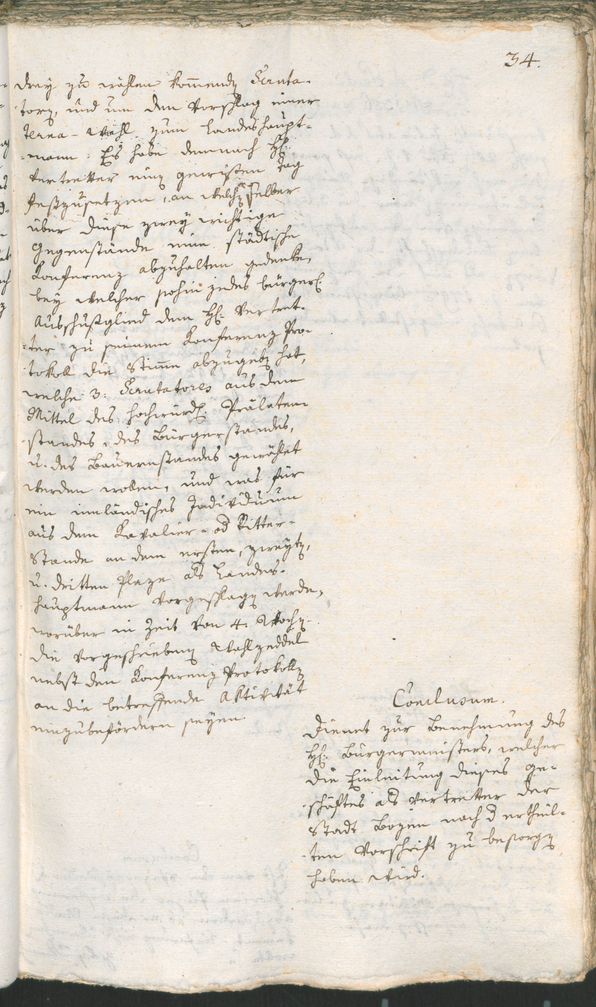 34.
drey zu wählen kommende Scruta-
torn, und um den Vorschlag einer
Terna-Wahl zum Landeshaupt-
mann: Es habe demnach H:
Vertretter einen gewißen Tag
festzusetzen, an welchen selber
über diese zwey wichtige
Gegenstände eine städtische
Konferenz abzuhalten gedenke,
bey welcher sohin jedes bürgerl:
Ausschußglied dem H: Vertret-
ter zu seinem Konferenz Pro-
tokoll die Stimm abzugeben hat,
welche 3: Scrutatores aus dem
Mittel des hochwürd: Prälaten-
standes, des Bürgerstandes,
u: des Bauernstandes gewählt
werden wollen, und was für
ein inländisches Individuum
aus dem Kavalier- od Ritter-
Stande an dem ersten, zweyten,
u: dritten Plaze als Landes-
hauptmann vorgeschlagen werde,
worüber in Zeit von 4 Wochen
die vorgeschriebenen Wahlzeddel
nebst den Konferenz Protokolln
an die betreffende Aktivität
einzubefördern seyen.
Conclusum.
Dienet zur Benehmung des
H: Bürgermeisters, welcher
die Einleitung dieses Ge-
schäftes als Vertretter der
Stadt Bozen nach d ertheil-
ten Vorschrift zu besorgen
haben wird.